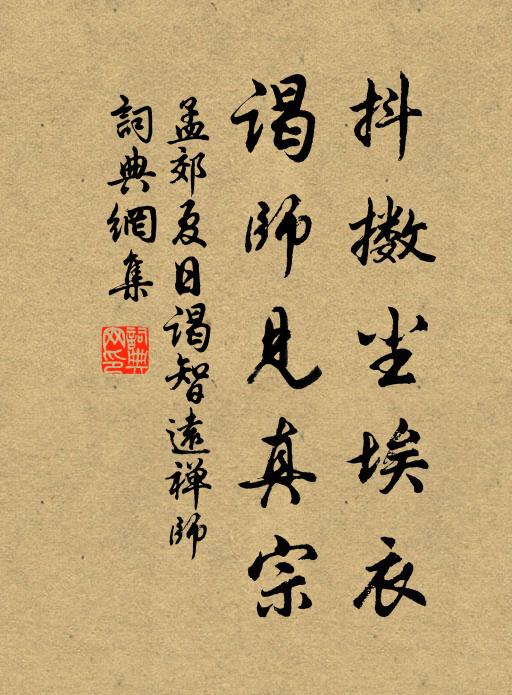 抖擞尘埃衣
谒师见真宗
孟郊夏日谒智远禅师
詞典網集
詞典网印